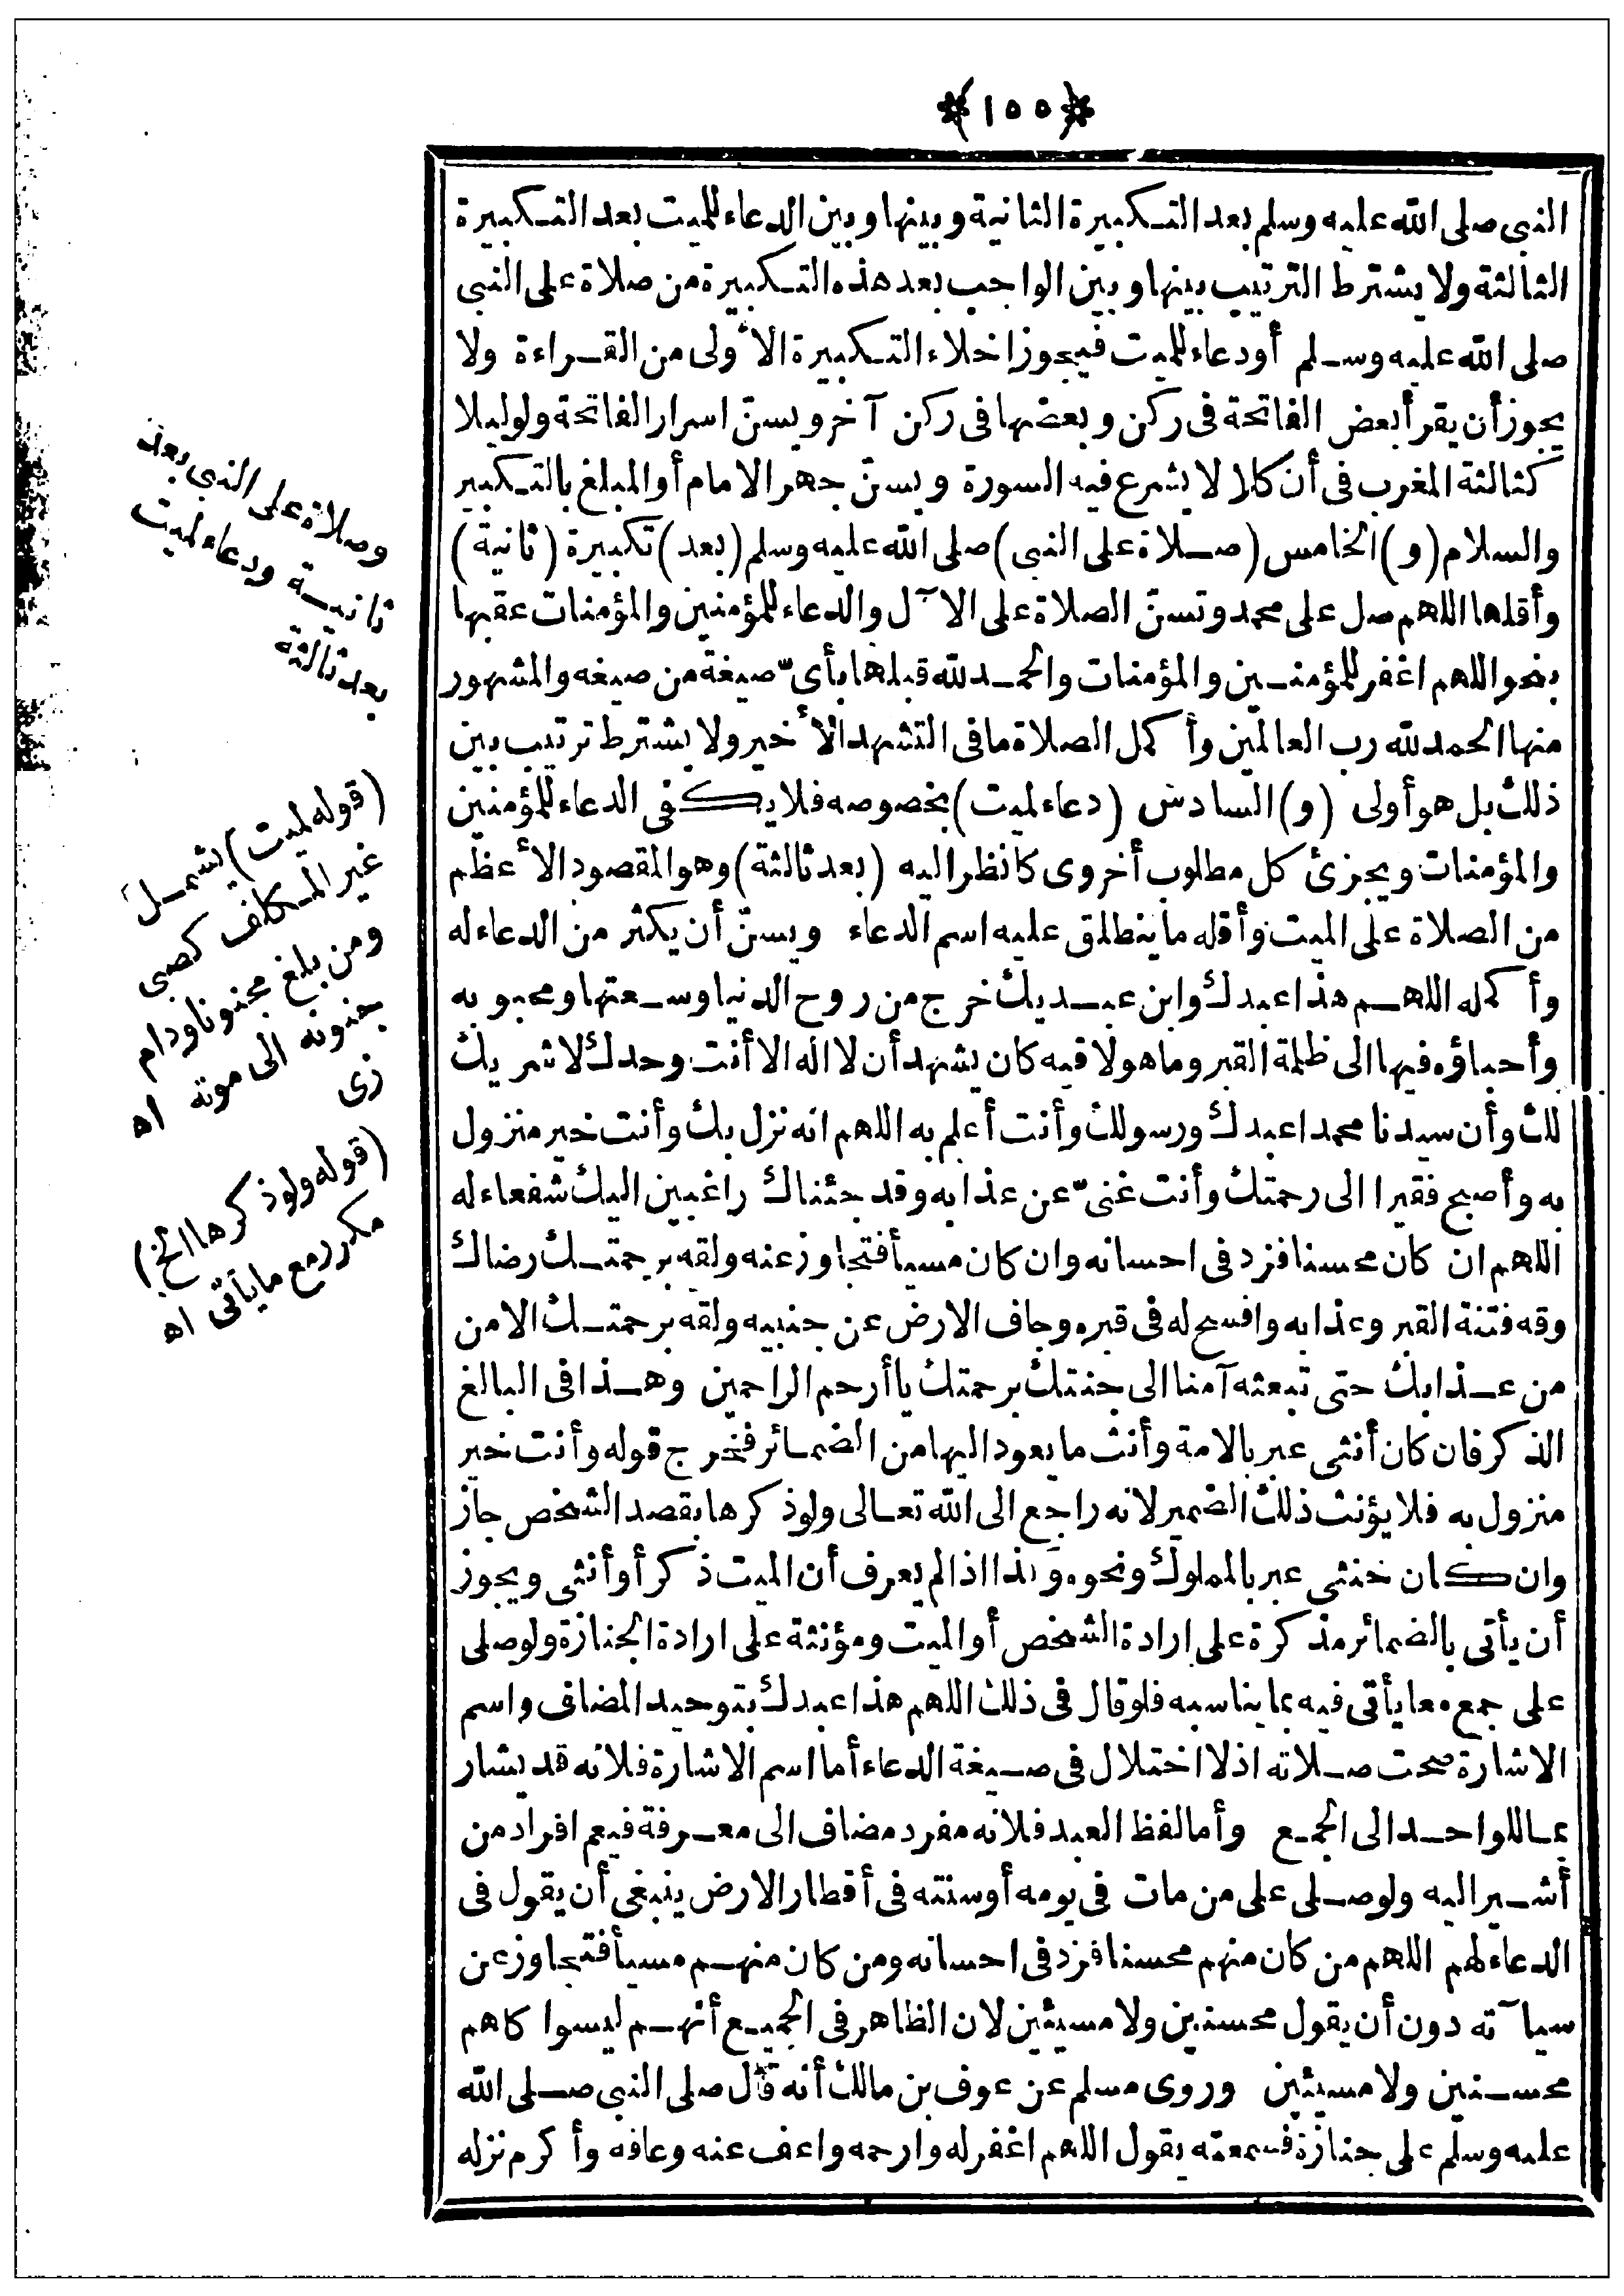 ﴿١٥٥﴾
النبى صلى الله عليه وسلم بعد التكبيرة الثانية وبينها وبين الدعاء للميت بعد التكبيرة
الثالثة ولا يشترط الترتيب بينها وبين الواجب بعد هذه التكبيرة من صلاة على النبى
صلى الله عليه وسلم أودعاء للميت فيجوز اخلاء التكبيرة الأولى من القراءة ولا
يجوز أن يقرأ بعض الفاتحة فى ركن وبعضها فى ركن آخر ويسنّ اسرار الفاتحة ولوليلا
كثالثة المغرب فى أن كلا لا يشرع فيه السورة ويسنّ جهر الامام أو المبلغ بالتكبير
والسلام (و) الخامس (صلاة على النبى) صلى الله عليه وسلم (بعد) تكبيرة (ثانية)
وأقلها اللهم صل على محمد وتسنّ الصلاة على الآل والدعاء للمؤمنين والمؤمنات عقبها
بنحو اللهم اغفر للمؤمنين والمؤمنات والحمد لله قبلها بأىّ صيغة من صيغه والمشهور
منها الحمد لله رب العالمين وأكمل الصلاة ما فى التشهد الأخير ولا يشترط ترتيب بين
ذلك بل هو أولى (و) السادس (دعاء لميت) بخصوصه فلا يكفى الدعاء للمؤمنين
والمؤمنات ويجزئ كل مطلوب أخروى كانظر اليه (بعد ثالثة) وهو المقصود الأعظم
من الصلاة على الميت وأقله ما ينطلق عليه اسم الدعاء ويسنّ أن يكثر من الدعاء له
وأكمله اللهم هذا عبدك وابن عبديك خرج من روح الدنيا وسعتها ومحبوبه
وأحباؤه فيها الى ظلمة القبر وما هو لاقيه كان يشهد أن لا اله الا أنت وحدك لا شريك
لك وأن سيدنا محمدا عبدك ورسولك وأنت أعلم به اللهم انه نزل بك وأنت خير منزول
به وأصبح فقيرا الى رحمتك وأنت غنىّ عن عذابه وقد جئناك راغبين اليك شفعاء له
اللهم ان كان محسنا فزد فى احسانه وان كان مسيأ فتجاوز عنه ولقه برحمتك رضاك
وقه فتنة القبر وعذابه وافسح له فى قبره وجاف الارض عن جنبيه ولقه برحمتك الامن
من عذابك حتى تبعثه آمنا الى جنتك برحمتك يا أرحم الراحمين وهذا فى البالغ
الذكر فان كان أنثى عبر بالامة وأنث ما يعود اليها من الضمائر فخرج قوله وأنت خير
منزول به فلا يؤنث ذلك الضمير لانه راجع الى الله تعالى ولو ذكرها بقصد الشخص جاز
وان كان خنثى عبر بالمملوك ونحوه وكذا اذا لم يعرف أن الميت ذكر أو أنثى ويجوز
أن يأتى بالضمائر مذكرة على ارادة الشخص أو الميت ومؤنثة على ارادة الجنازة ولو صلى
على جمع معا يأتى فيه بما يناسبه فلو قال فى ذلك اللهم هذا عبدك بتوحيد المضاف واسم
الاشارة صحت صلاته اذ لا اختلال فى صيغة الدعاء أما اسم الاشارة فلانه قد يشار
بما للواحد الى الجمع وأما لفظ العبد فلانه مفرد مضاف الى معرفة فيعم افراد من
أشير اليه ولو صلى على من مات فى يومه أو سنته فى أقطار الارض ينبغى أن يقول فى
الدعاء لهم اللهم من كان منهم محسنا فزد فى احسانه ومن كان منهم مسيأ فتجاوز عن
سيآته دون أن يقول محسنين ولا مسيئين لان الظاهر فى الجميع أنهم ليسوا كلهم
محسنين ولا مسيئين وروى مسلم عن عوف بن مالك أنه قال صلى النبى صلى الله
عليه وسلم على جنازة فسمعته يقول اللهم اغفر له وارحمه واعف عنه وعافه وأكرم نزله
وصلاة على النبى بعد
ثانية ودعاء لميت
بعد ثالثة
(قوله لميت) يشمل
غير المكلف كصبى
ومن بلغ مجنونا ودام
جنونه الى موته اه
زى
(قوله ولو ذكرها الخ)
مكرر مع ما يأتى اه